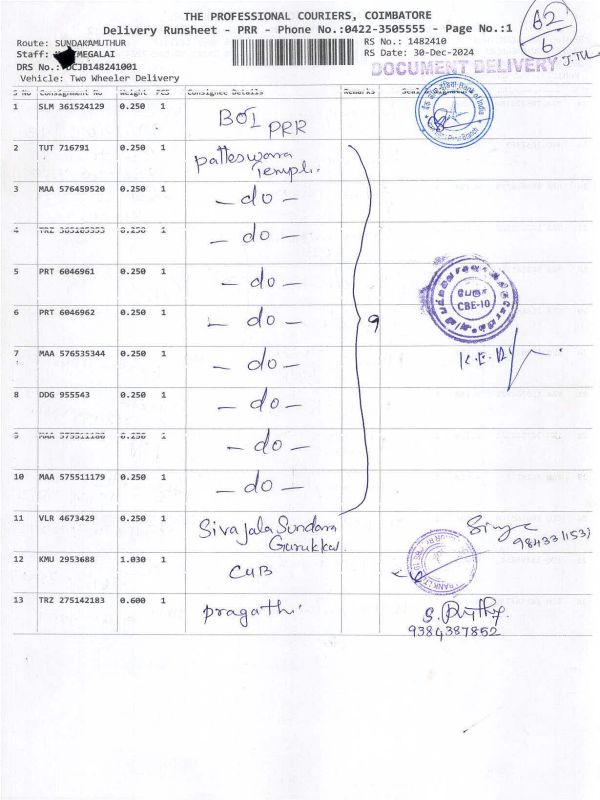 THE PROFESSIONAL COURIERS, COIMBATORE
Delivery Runsheet - PRR - Phone No.:0422-3505555 - Page No.:1
62
6
Route: SUNDAKAMUTHUR
RS No.: 1482410
Staff: MEGALAI
RS Date: 30-Dec-2024
DRS No.: DCJB148241001
DOCUMENT DELIVERY
Vehicle: Two Wheeler Delivery
S No Consignment No Weight PCS Consignee Details Remarks
1 SLM 361524129 0.250 1 BOI PRR
Bank of India
2 TUT 716791 0.250 1 Patteswara
Temple.
3 MAA 576459520 0.250 1 - do -
4 TRZ 0.250 1 - do -
5 PRT 6046961 0.250 1 - do -
6 PRT 6046962 0.250 1 - do - 9
CBE-10
7 MAA 576535344 0.250 1 - do -
8 DDG 955543 0.250 1 - do -
9 MAA 0.250 1 - do -
10 MAA 575511179 0.250 1 - do -
11 VLR 4673429 0.250 1 Sivajala Sundara
Gurukkal.
12 KMU 2953688 1.030 1 CUB
13 TRZ 275142183 0.600 1 Pragathi
9384387852